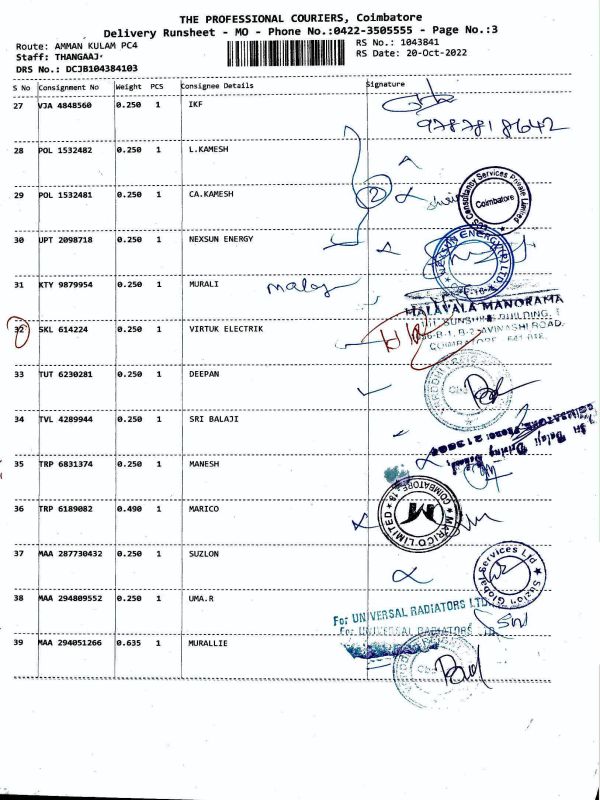 THE PROFESSIONAL COURIERS, Coimbatore
Delivery Runsheet - MO - Phone No.:0422-3505555 - Page No.:3
Route: AMMAN KULAM PC4 RS No.: 1043841
Staff: THANGAAJ RS Date: 20-Oct-2022
DRS No.: DCJB104384103
S No Consignment No Weight PCS Consignee Details Signature
27 VJA 4848560 0.250 1 IKF
9787818642
28 POL 1532482 0.250 1 L.KAMESH
29 POL 1532481 0.250 1 CA.KAMESH 2
Consultancy Services Private Limited
Coimbatore
30 UPT 2098718 0.250 1 NEXSUN ENERGY
NEXSUN ENERGY (P) LTD
31 KTY 9879954 0.250 1 MURALI
MALAYALA MANORAMA
SUNSHINE BUILDING,
B-1, B-2 AVINASHI ROAD,
COIMBATORE - 641 018.
32 SKL 614224 0.250 1 VIRTUK ELECTRIK
33 TUT 6230281 0.250 1 DEEPAN
34 TVL 4289944 0.250 1 SRI BALAJI
Sri Balaji Driving School,
COIMBATORE
35 TRP 6831374 0.250 1 MANESH
36 TRP 6189082 0.490 1 MARICO
MARICO LIMITED * COIMBATORE-18 *
M
37 MAA 287730432 0.250 1 SUZLON
Suzlon Global Services Ltd
38 MAA 294809552 0.250 1 UMA.R
For UNIVERSAL RADIATORS LTD.
For UNIVERSAL RADIATORS LTD
39 MAA 294051266 0.635 1 MURALLIE